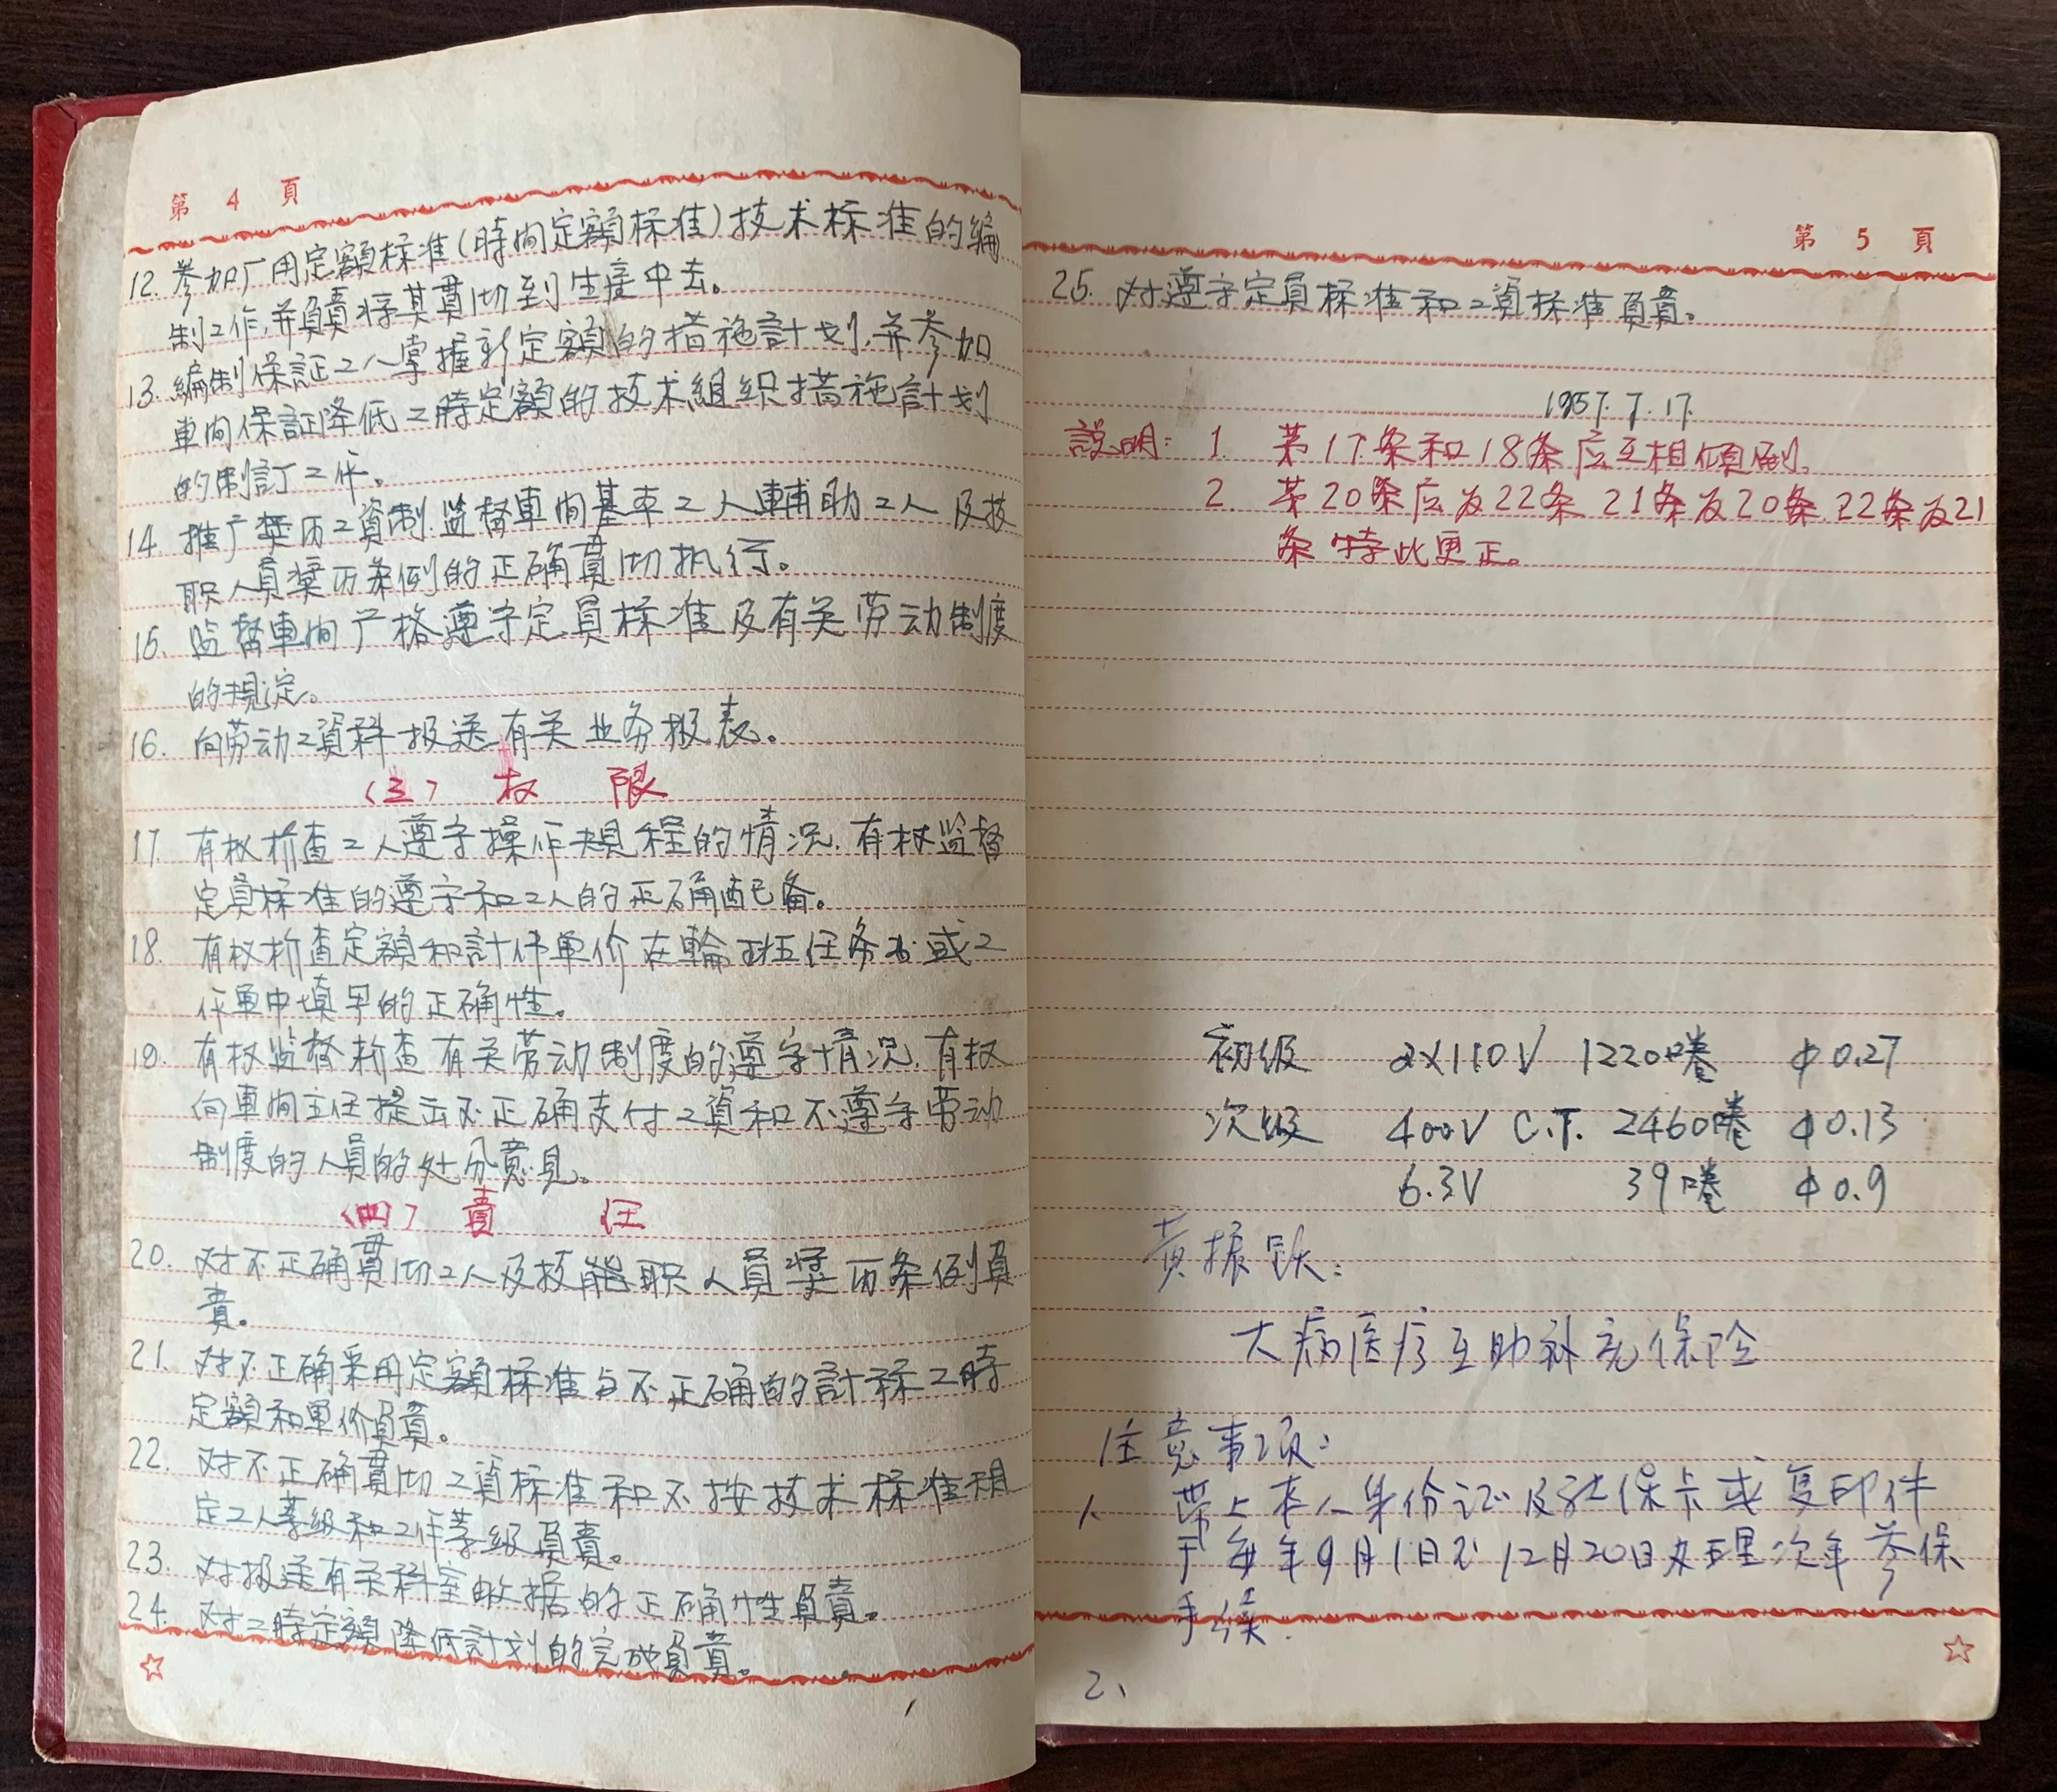 第 4 頁
12. 参加厂用定額标准(時間定額标准)技术标准的編
制工作,并負責将其貫切到生产中去。
13. 編制保証工人掌握新定額的措施計划,并参加
車间保証降低工時定額的技术組织措施計划
的制訂工作。
14. 推广奖历工資制.监督車间基本工人輔助工人及技
职人員奖历条例的正确貫切执行。
15. 监督車间严格遵守定員标准及有关劳动制度
的規定。
16. 向劳动工資科报送有关业务报表。
(三) 权 限
17. 有权检查工人遵守操作規程的情况.有权监督
定員标准的遵守和工人的正确配备。
18. 有权检查定額和計件單价在輪班任务书或工
作單中填写的正确性。
19. 有权监督检查有关劳动制度的遵守情况.有权
向車间主任提出不正确支付工資和不遵守劳动
制度的人員的处分意見。
(四) 責 任
20. 对不正确貫切工人及技能职人員奖历条例負
責。
21. 对不正确采用定額标准与不正确的計祘工時
定額和單价負責。
22. 对不正确貫切工資标准和不按技术标准規
定工人等級和工作等級負責。
23. 对报送有关科室数据的正确性負責。
24. 对工時定額降低計划的完成負責。
第 5 頁
25. 对遵守定員标准和工資标准負責。
1957.7.17.
説明: 1. 第17条和18条应互相傾倒。
2. 第20条应为22条 21条为20条.22条为21
条特此更正。
初级 2×110V 1220圈 φ0.27
次级 400V C.T. 2460圈 φ0.13
6.3V 39圈 φ0.9
黄振跃:
大病医疗互助补充保险
注意事项:
1、带上本人身份证及社保卡或复印件
于每年9月1日至12月20日办理次年参保
手续.
2、